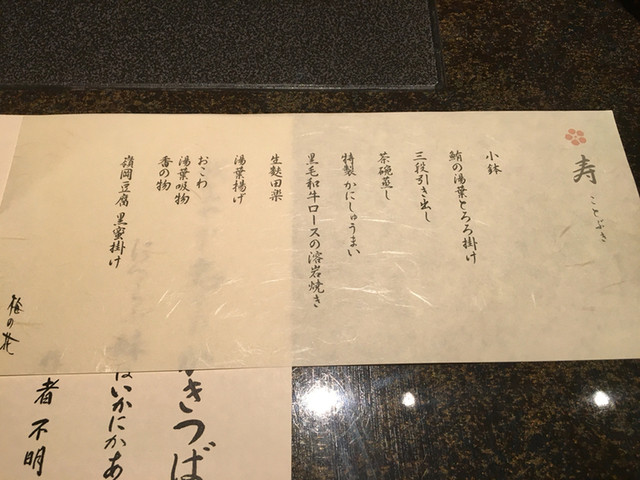 寿
ことぶき
小鉢
鮪の湯葉とろろ掛け
三段引き出し
茶碗蒸し
特製かにしゅうまい
黒毛和牛ロースの溶岩焼き
生麩田楽
湯葉揚げ
おこわ
湯葉吸物
香の物
嶺岡豆腐 黒蜜掛け
梅の花
きつば
はいかにかあ
者不明